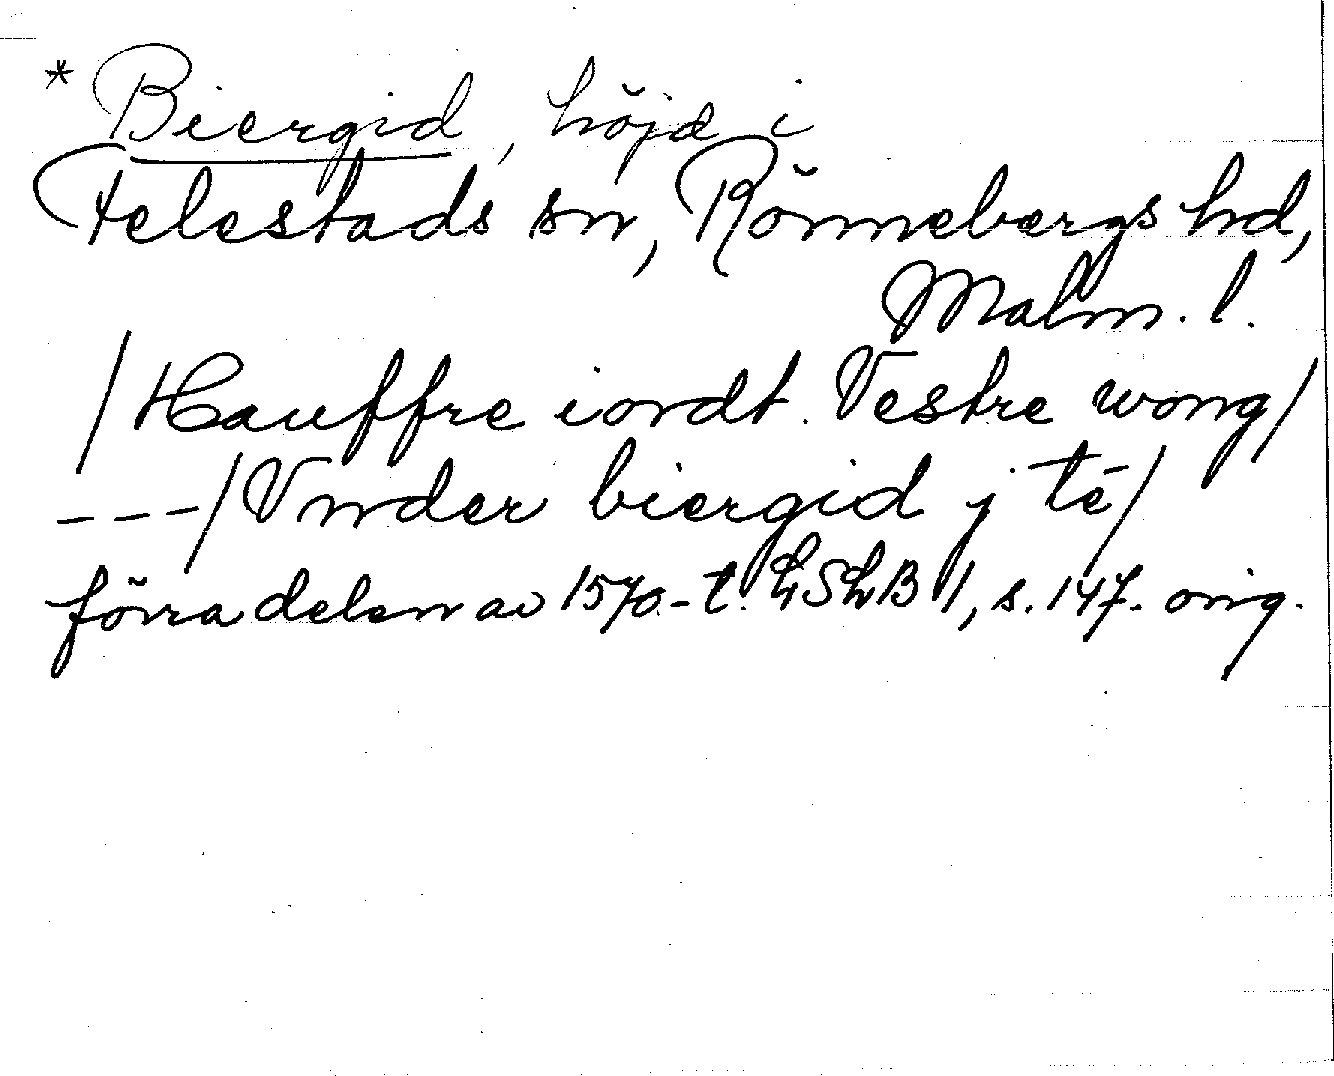 * Biergid, höjd i
Felestads sn, Rönnebergs hd,
Malm. l.
/Hauffre iordt. Vestre wong/
---/Vnder biergid j té/
förra delen av 1570-t. LSLB 1, s. 147. orig.